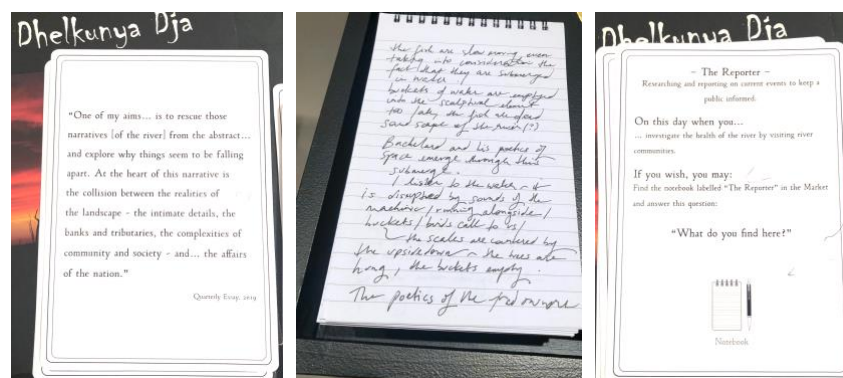 Dhelkunya Dja
"One of my aims... is to rescue those
narratives [of the river] from the abstract...
and explore why things seem to be falling
apart. At the heart of this narrative is
the collision between the realities of
the landscape - the intimate details, the
banks and tributaries, the complexities of
community and society - and... the affairs
of the nation."
Quarterly Essay, 2019
the fish are slow moving even
taking into consideration the
fact that they are submerged
in water.
buckets of water are emptied
into the sculptural element
too / the fish
sound scape of the river (?)
Bachelard and his poetics of
space emerge through this
submerge.
I listen to the water - it
is disrupted by sounds of the
machine / running alongside /
buckets / birds call to us /
the scales are countered by
the upsidedown - the trees are
hung, the buckets empty.
The poetics of the
Dhelkunya Dja
- The Reporter -
Researching and reporting on current events to keep a
public informed.
On this day when you...
... investigate the health of the river by visiting river
communities.
If you wish, you may:
Find the notebook labelled "The Reporter" in the Market
and answer this question:
"What do you find here?"
Notebook